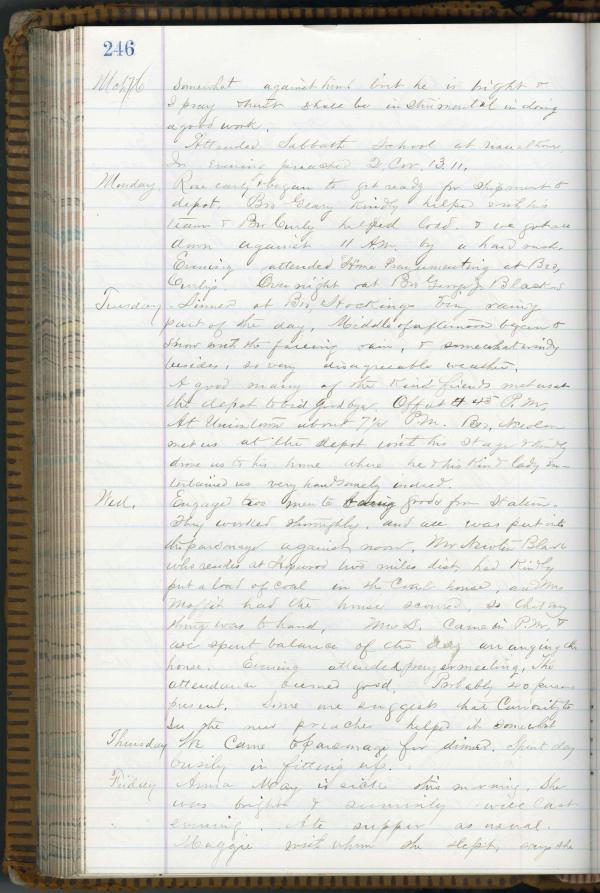 246
Mch 7/76 Somewhat against him but he is bright &
I pray that shall be instrumental in doing
a good work.
Attended Sabbath School at usual hour.
In evening preached 2, Cor. 13.11.
Monday. Rose early & began to get ready for shipment to
depot. Bro Geary kindly helped with his
team & Bro Curly helped load. & we got all
down against 11 A.M. by a hard rush.
Evening attended Home Prayermeeting at Bro,
Curly's. Over night at Bro George J Black's
Tuesday. Dinner at Bro, Hockings. Very rainy
part of the day, Middle of afternoon began to
snow with the freezing rain, & somewhat windy
besides, so very disagreeable weather.
A good many of the kind friends met us at
the depot to bid goodbye. Off at 4 45 P.M.
At Uniontown about 7 P.M. Bro,
met us at the depot with his stage & kindly
drove us to his home where he & his kind lady en-
tertained us very handsomely indeed.
Wed. Engaged two men to bring goods from Station.
They worked thoroughly, and all was put into
the parsonage against noon. Mr Newton Black
who resides at Hopwood two miles dist, had kindly
put a load of coal in the Coal house, and Mrs
Moffit had the house scoured, so that any
thing was to hand. Mrs S. Came in P.M. &
we spent balance of the day arranging the
house. Evening attended prayermeeting, The
attendance seemed good, Probably 40 persons
present. Some one suggests that Curiosity to
see the new preacher helped it somewhat
Thursday We Came to parsonage for dinner. Spent day
busily in fitting up.
Friday Anna May is sick this morning. She
was bright & seemingly well last
evening. Ate supper as usual.
Maggie with whom she slept, says she